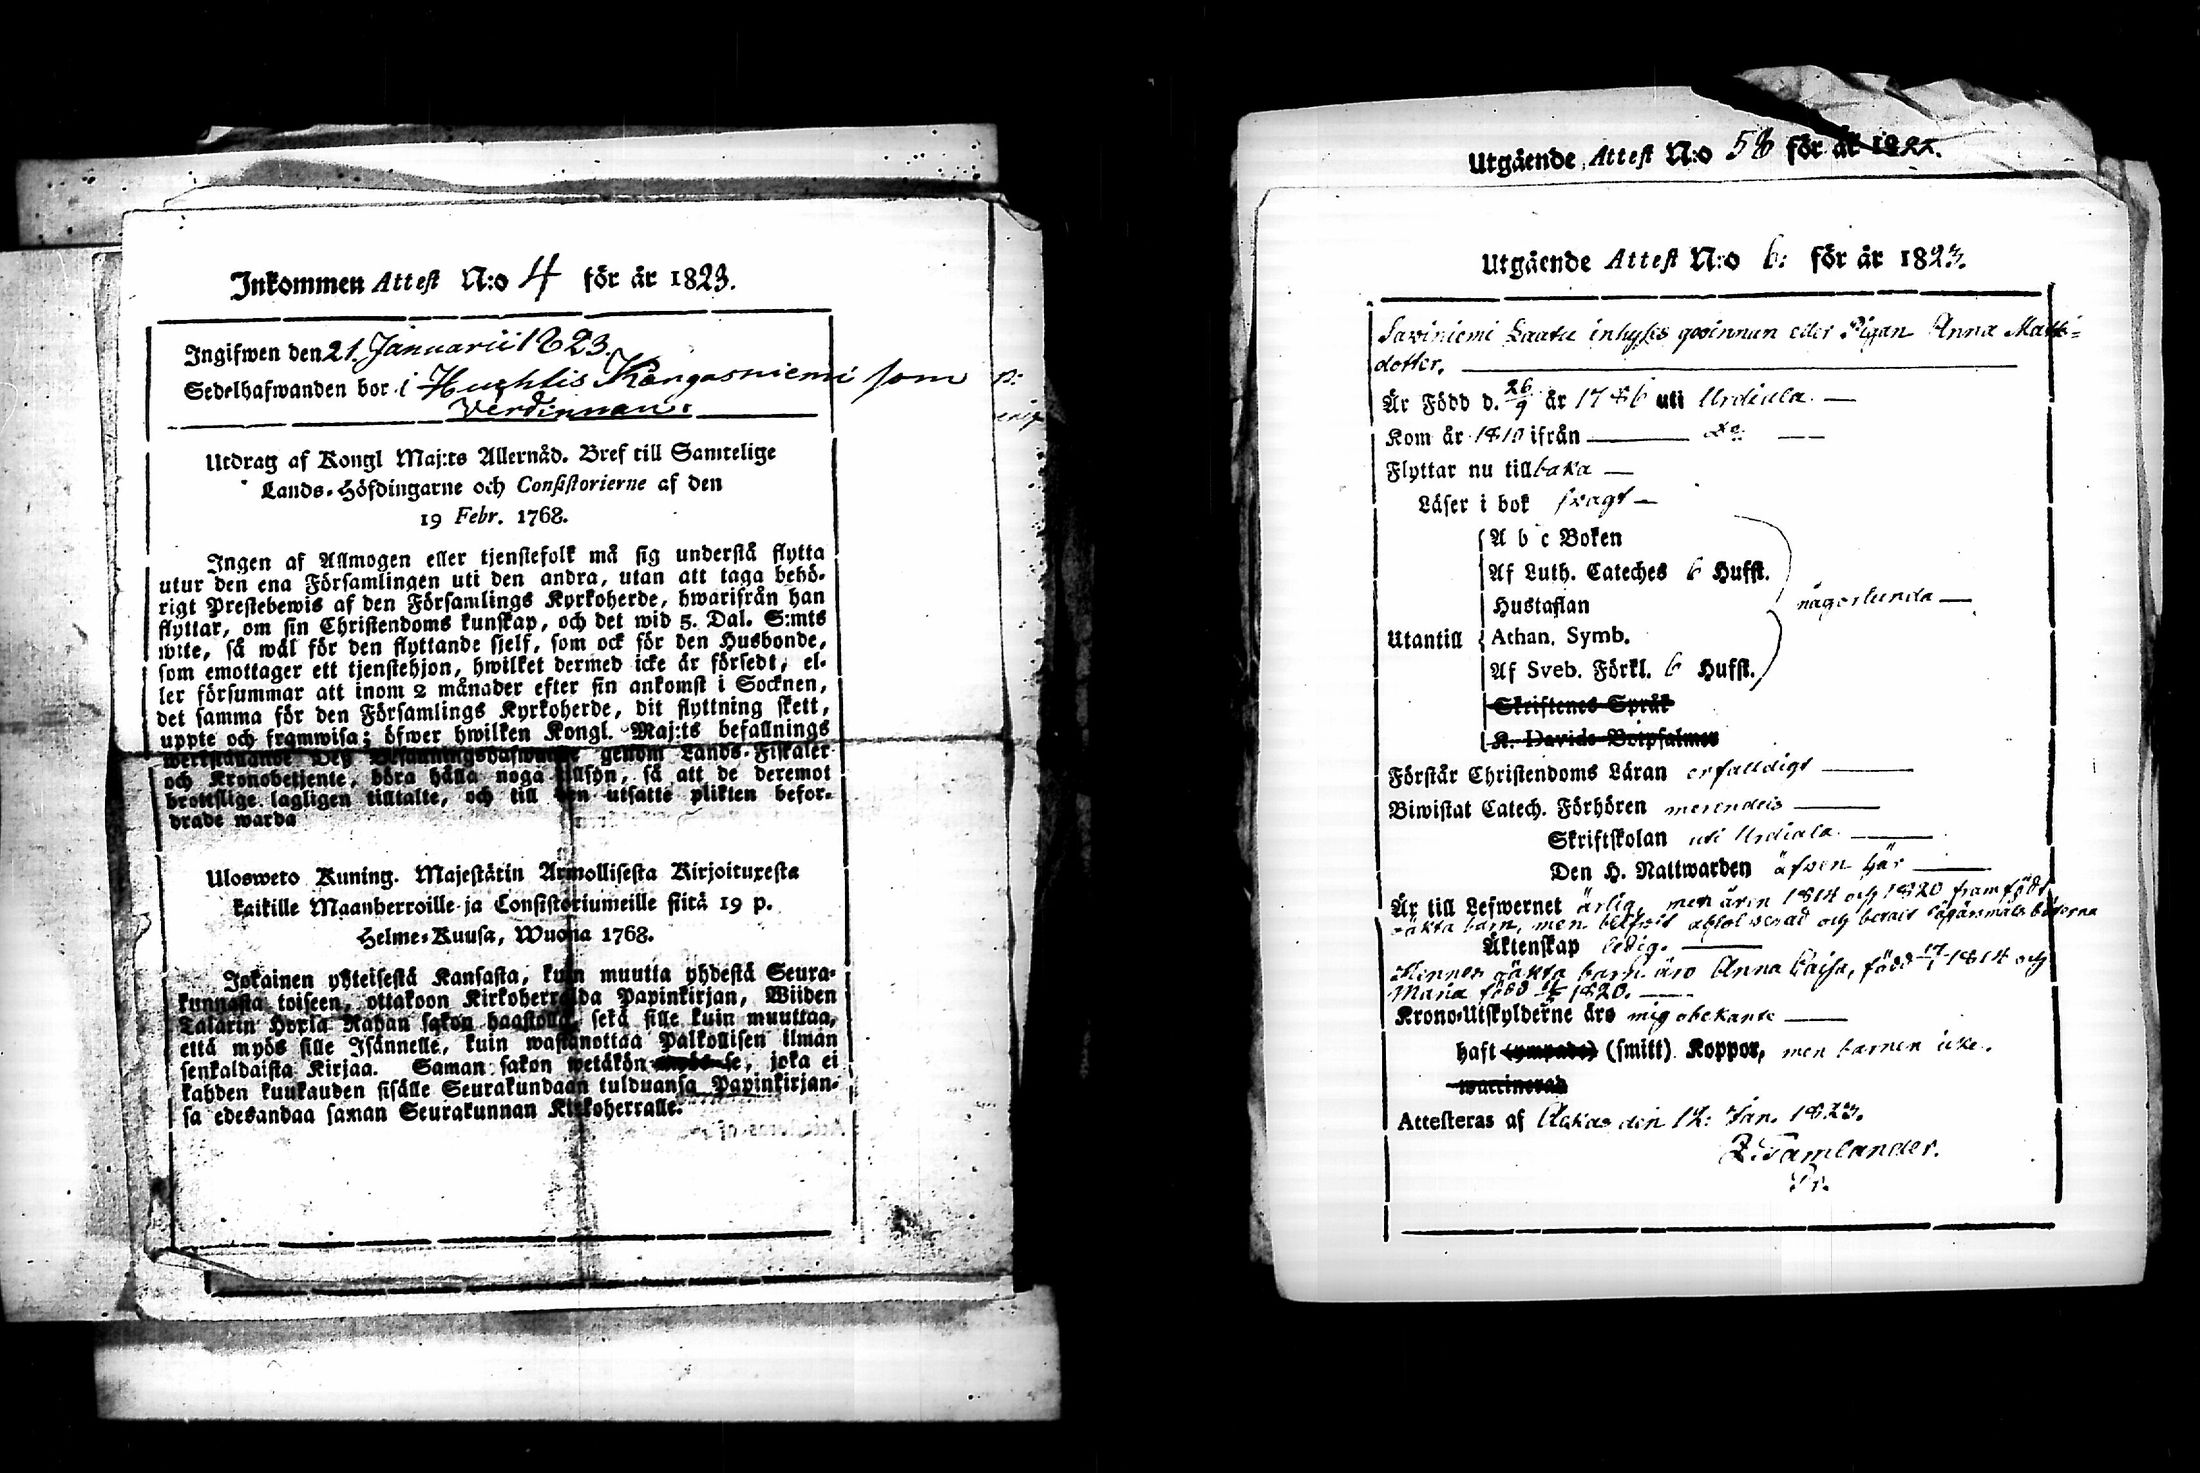 Inkommen Attest N:o 4 för år 1823.
Ingifwen den 21. Januarii 1823.
Sedelhafwanden bor i Huhtis Kangasniemi som
Värdinnan.
Utdrag af Kongl Maj:ts Allernåd. Bref till Samtelige
Lands-Höfdingarne och Consistorierne af den
19 Febr. 1768.
Ingen af Allmogen eller tjenstefolk må sig understå flytta
utur den ena Församlingen uti den andra, utan att taga behö-
rigt Prestebewis af den Församlings Kyrkoherde, hwarifrån han
flyttar, om sin Christendoms kunskap, och det wid 5. Dal. S:mts
wite, så wäl för den flyttande sielf, som ock för den Husbonde,
som emottager ett tjenstehjon, hwilket dermed icke är försedt, el-
ler försummar att inom 2 månader efter sin ankomst i Socknen,
det samma för den Församlings Kyrkoherde, dit flyttning skett,
uppte och framwisa; öfwer hwilken Kongl. Maj:ts befallnings
werkställande Dess Befallningshafwande genom Lands-Fiskaler
och Kronobetjente, böra hålla noga tillsyn, så att de deremot
brottslige lagligen tilltalte, och till den utsatte plikten befor-
drade warda
Ulosweto Kuning. Majestätin Armollisesta Kirjoituxesta
kaikille Maanherroille ja Consistoriumeille siitä 19 p.
Helme-Kuusa, Wuonna 1768.
Jokainen yhteisestä Kansasta, kuin muutta yhdestä Seura-
kunnasta toiseen, ottakoon Kirkoherralda Papinkirjan, Wiiden
Talarin Hopia Rahan sakon haastolla, sekä sille kuin muuttaa,
että myös sille Isännelle, kuin wastanottaa Palkollisen ilman
senkaldaista Kirjaa. Saman sakon wetäkön myös se, joka ei
kahden kuukauden sisälle Seurakundaan tulduansa Papinkirjan-
sa edesandaa saman Seurakunnan Kirkoherralle.
Utgående Attest N:o 58 för år 1822.
Utgående Attest N:o 6: för år 1823.
Saviniemi Laatu inhyses qwinnan eller Pigan Anna Matts-
dotter.
Är Född d. 26/9 år 1786 uti Urdiala.
Kom år 1810 ifrån do
Flyttar nu tillbaka
Läser i bok svagt
A b c Boken
Af Luth. Cateches 6 Hufst.
Hustaflan
någorlunda
Utantill
Athan. Symb.
Af Sveb. Förkl. 6 Hufst.
Skriftenes Språk
K. Davids Botpsalmer
Förstår Christendoms Läran enfaldigt
Biwistat Catech. Förhören merendels
Skriftskolan uti Urdiala
Den H. Nattwarden äfven här
Är till Lefwernet ärlig, men åren 1814 och 1820 framfödt
oäkta barn, men blifvit absolverad och betalt lägersmåls böterna
Äktenskap ledig.
Hennes oäkta barn äro Anna Caisa, född 17/1 1814 och
Maria född 1820.
Krono-Utskylderne äro mig obekante
haft (ympade) (smitt) Koppor, men barnen icke.
waccinerad
Attesteras af Ackas den 12: Jan. 1823.
Z. Tamlander.